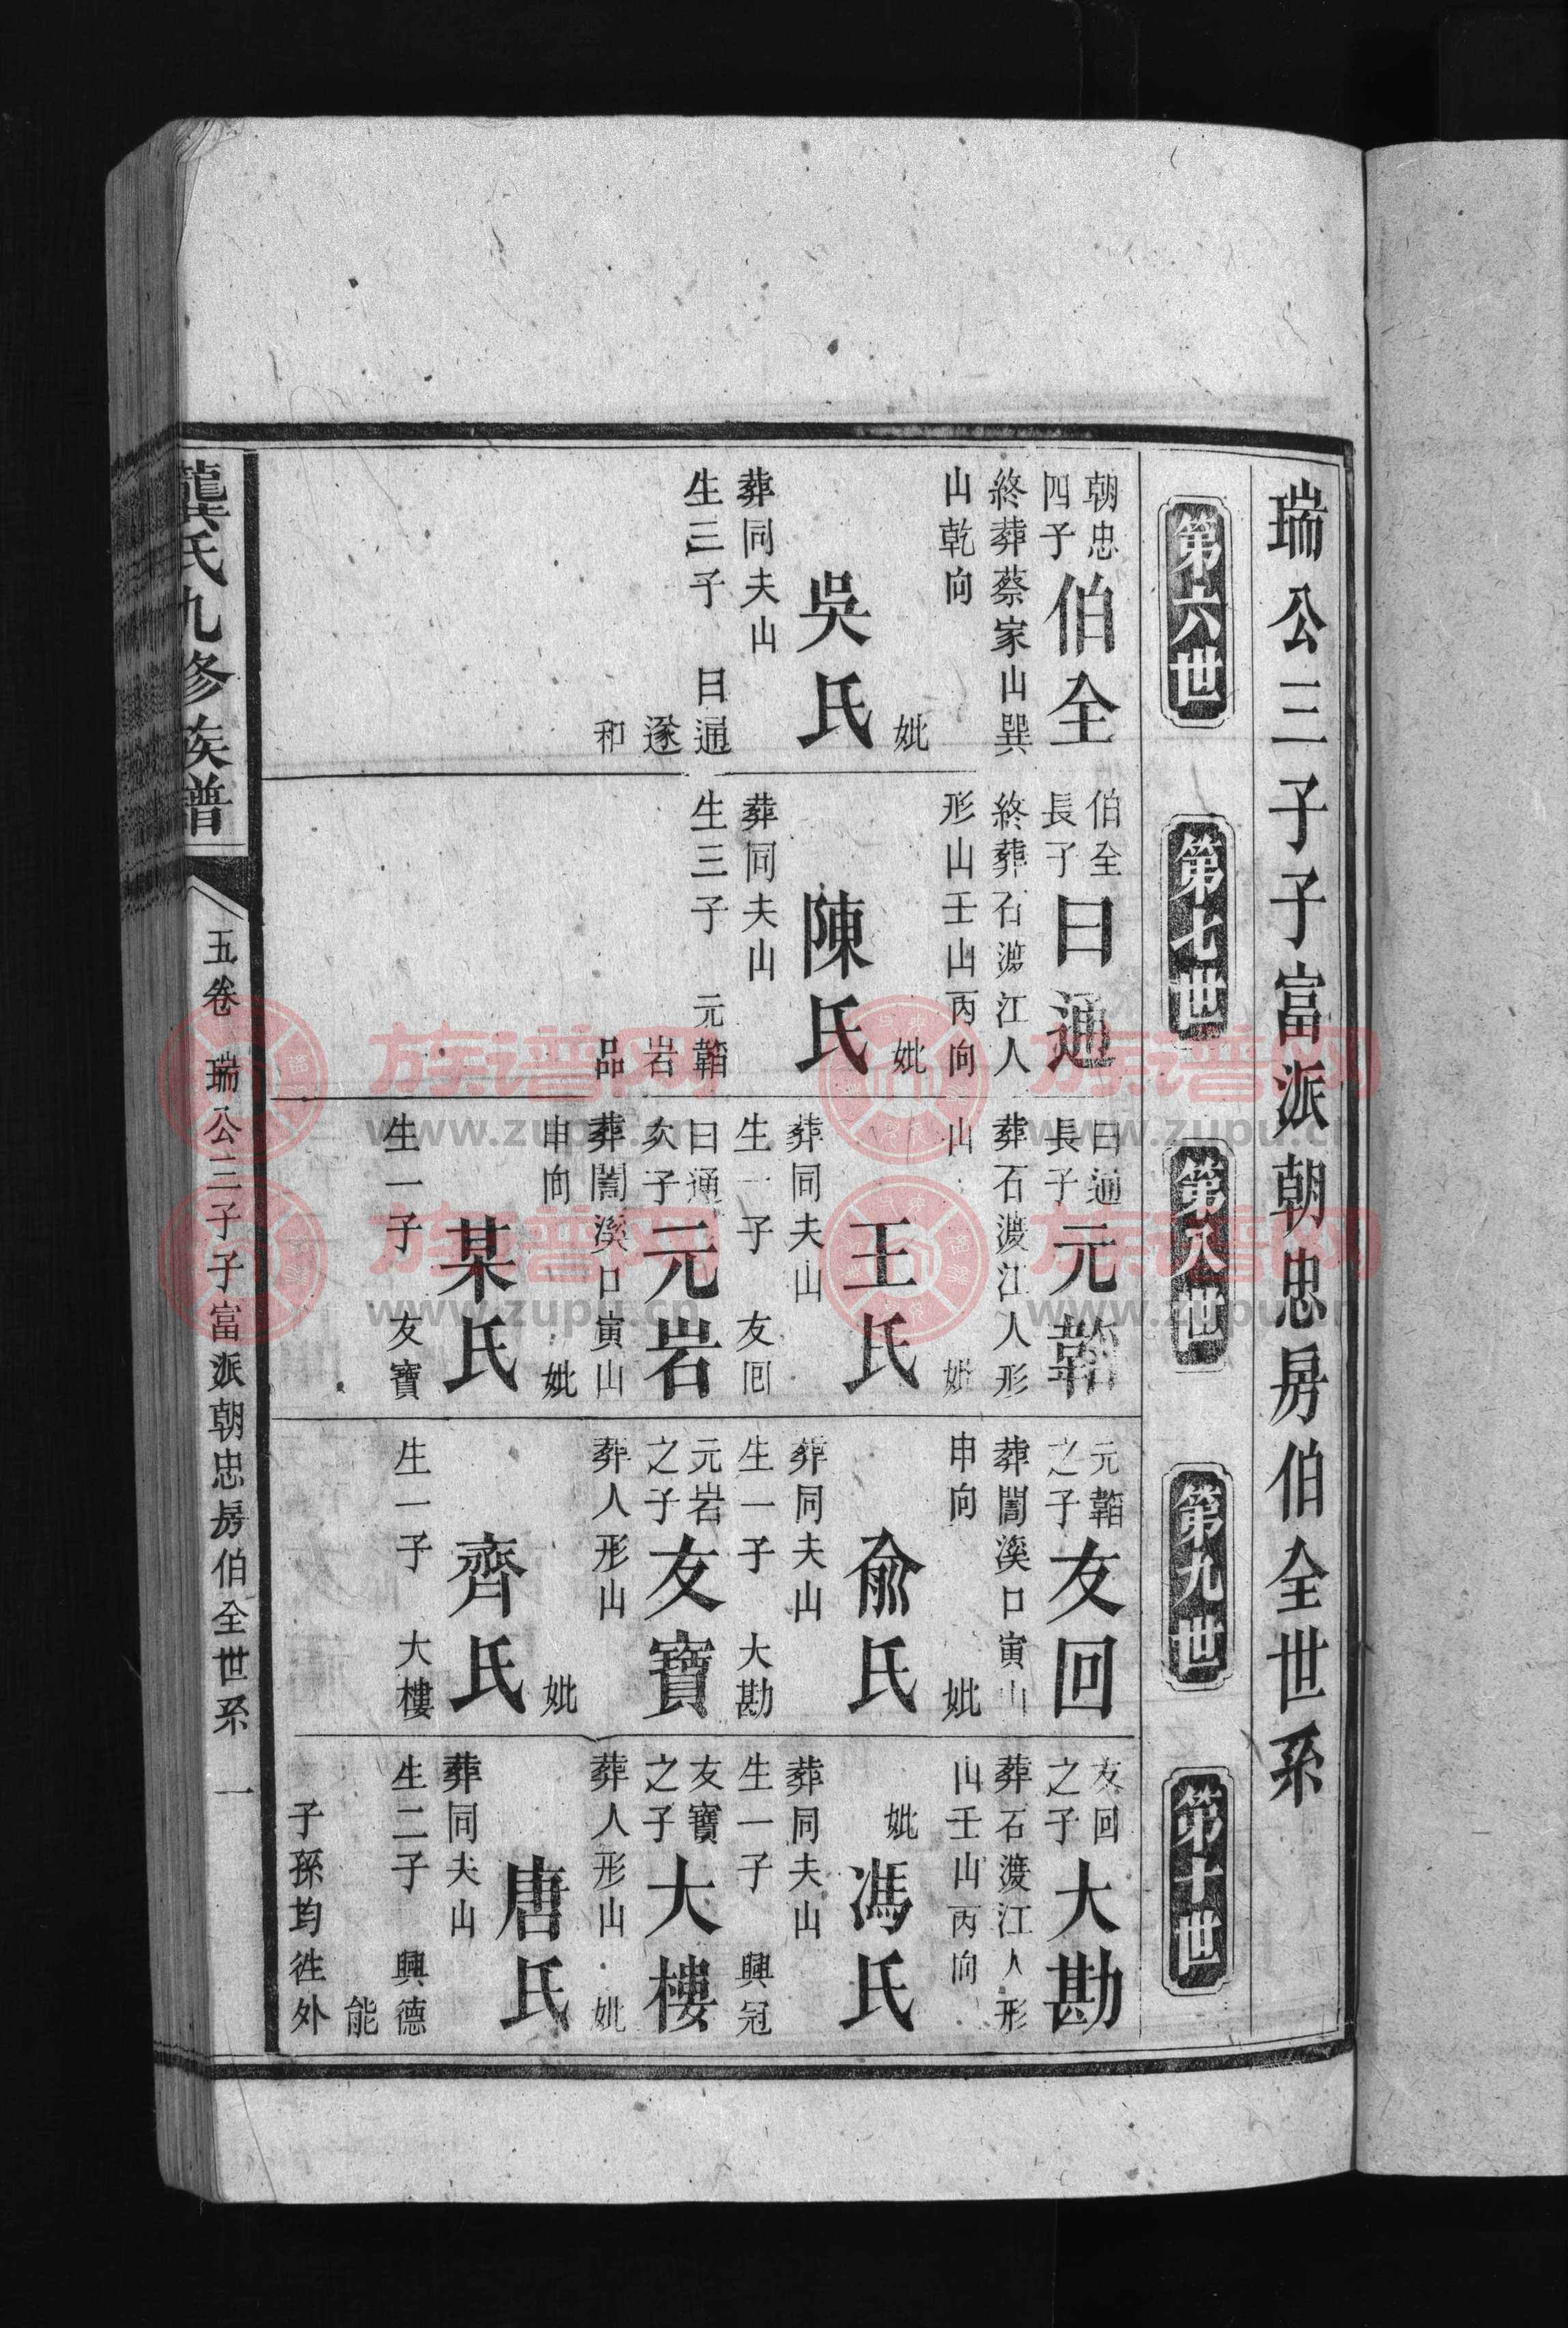 瑞公三子子富派朝忠房伯全世系
第六世
第七世
第八世
第九世
第十世
朝忠
四子
伯全
終葬蔡家山巽
山乾向
妣
吳氏
葬同夫山
生三子 曰通
遂
和
伯全
長子
曰通
終葬石渡江人
形山壬山丙向
妣
陳氏
葬同夫山
生三子 元韜
岩
品
曰通
長子
元韜
葬石渡江人形
山
妣
王氏
葬同夫山
生一子 友回
曰通
次子
元岩
葬閣溪口寅山
申向
妣
某氏
生一子 友寶
元韜
之子
友回
葬閣溪口寅山
申向
妣
俞氏
葬同夫山
生一子 大勘
元岩
之子
友寶
葬人形山
妣
齊氏
生一子 大樓
友回
之子
大勘
葬石渡江人形
山壬山丙向
妣
馮氏
葬同夫山
生一子 興冠
友寶
之子
大樓
葬人形山
妣
唐氏
葬同夫山
生二子 興德
能
子孫均徃外
龔氏九修族譜
五卷 瑞公三子子富派朝忠房伯全世系 一
族谱网
www.zupu.cn
族谱网
www.zupu.cn
族谱网
www.zupu.cn
族谱网
www.zupu.cn